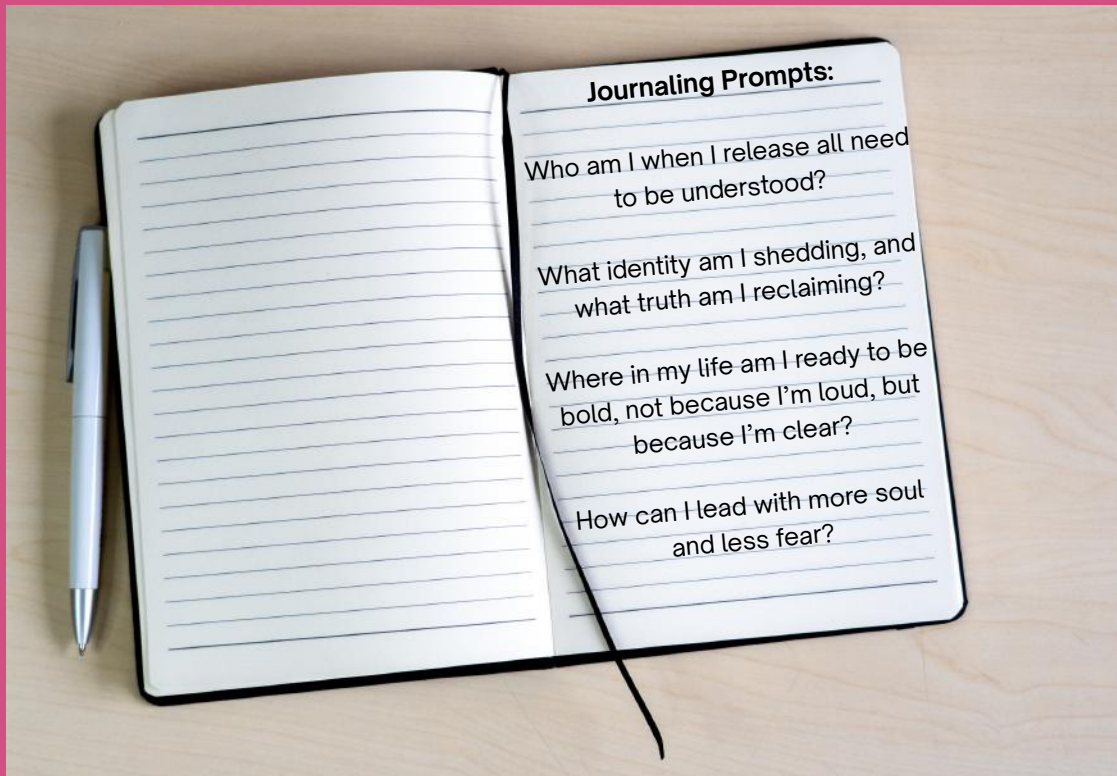 Journaling Prompts:
Who am I when I release all need
to be understood?
What identity am I shedding, and
what truth am I reclaiming?
Where in my life am I ready to be
bold, not because I’m loud, but
because I’m clear?
How can I lead with more soul
and less fear?